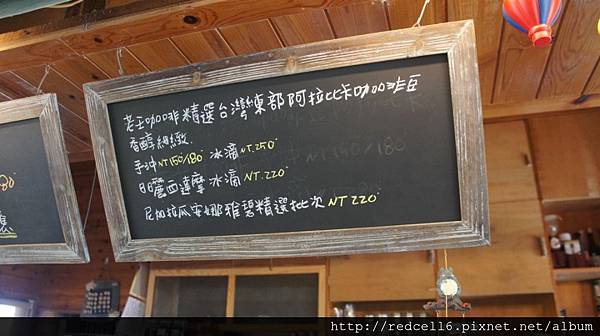 老王咖啡精選台灣東部阿拉比卡咖啡豆
香醇細緻
手沖NT150/180 冰滴NT.250
日曬西達摩 冰滴NT.220
尼加拉瓜安娜雅碧精選批次NT220
http://redcell6.pixnet.net/album